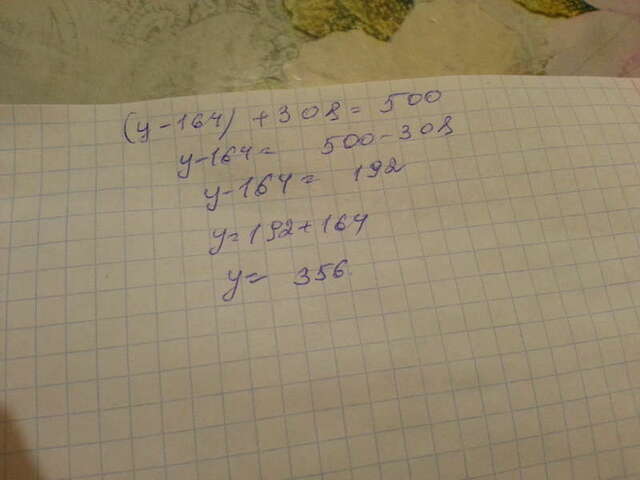 (y-164) +308= 500
y-164= 500-308
y-164= 192
y=192+164
y= 356